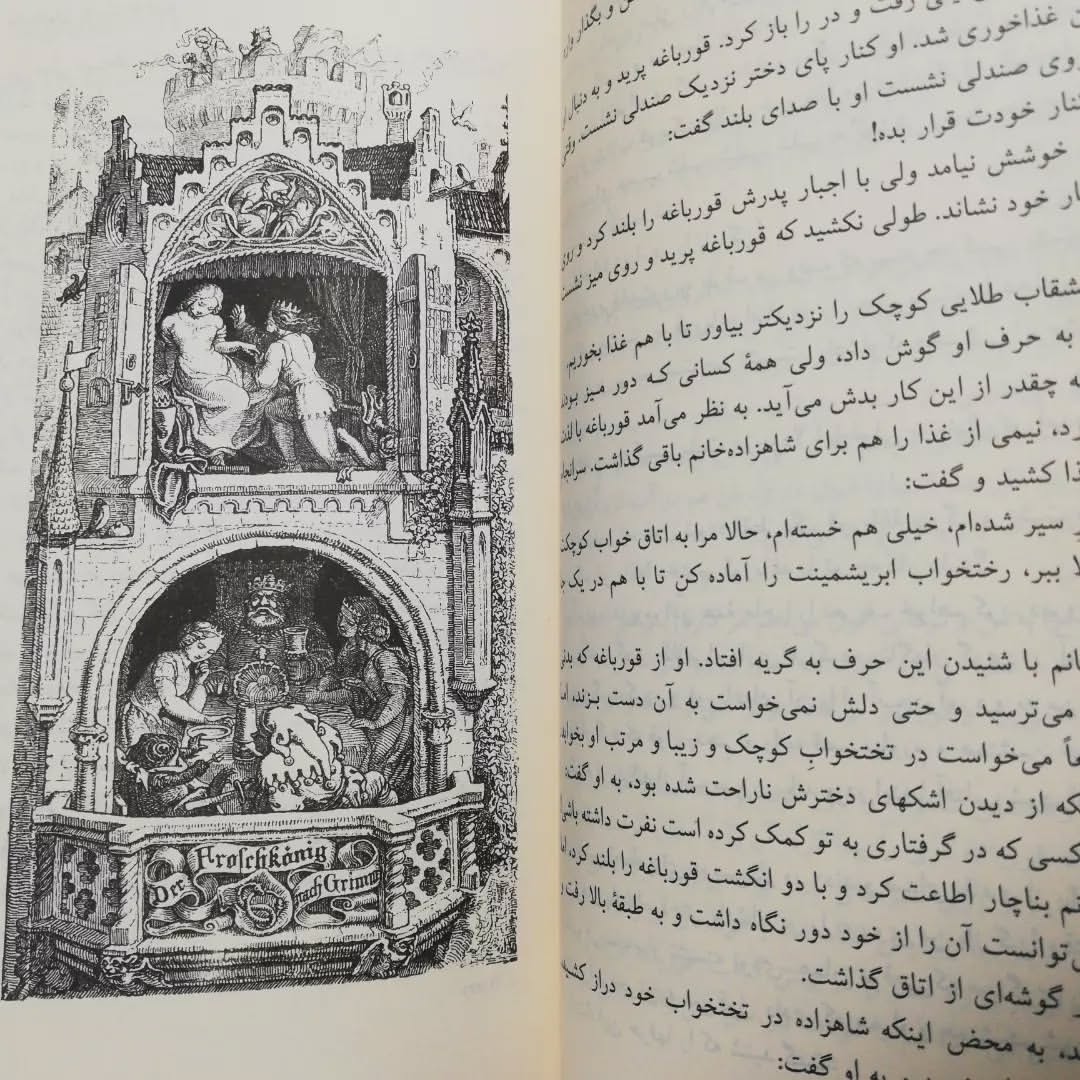 Der Froschkönig nach Grimm
ن و بگذار وارد
رفت و در را باز کرد. قورباغه پرید و به دنبال
ن غذاخوری شد. او کنار پای دختر نزدیک صندلی نشست. وقتی
روی صندلی نشست او با صدای بلند گفت:
نار خودت قرار بده!
خوشش نیامد ولی با اجبار پدرش قورباغه را بلند کرد و روی
ار خود نشاند. طولی نکشید که قورباغه پرید و روی میز نشست
شقاب طلایی کوچک را نزدیکتر بیاور تا با هم غذا بخوریم.
به حرف او گوش داد، ولی همهٔ کسانی که دور میز بودند
ه چقدر از این کار بدش می‌آید. به نظر می‌آمد قورباغه با لذت
رد، نیمی از غذا را هم برای شاهزاده‌خانم باقی گذاشت. سرانجام
ذا کشید و گفت:
سیر شده‌ام، خیلی هم خسته‌ام، حالا مرا به اتاق خواب کوچکت
لا ببر، رختخواب ابریشمینت را آماده کن تا با هم در یک ج
انم با شنیدن این حرف به گریه افتاد. او از قورباغه که بدنی
می‌ترسید و حتی دلش نمی‌خواست به آن دست بزند، اما
عاً می‌خواست در تختخوابِ کوچک و زیبا و مرتب او بخوابد.
که از دیدن اشکهای دخترش ناراحت شده بود، به او گفت:
کسی که در گرفتاری به تو کمک کرده است نفرت داشته باشی
نم بناچار اطاعت کرد و با دو انگشت قورباغه را بلند کرد، اما
ی‌توانست آن را از خود دور نگاه داشت و به طبقهٔ بالا رفت و
ر گوشه‌ای از اتاق گذاشت.
د، به محض اینکه شاهزاده در تختخواب خود دراز کشید
به او گفت: